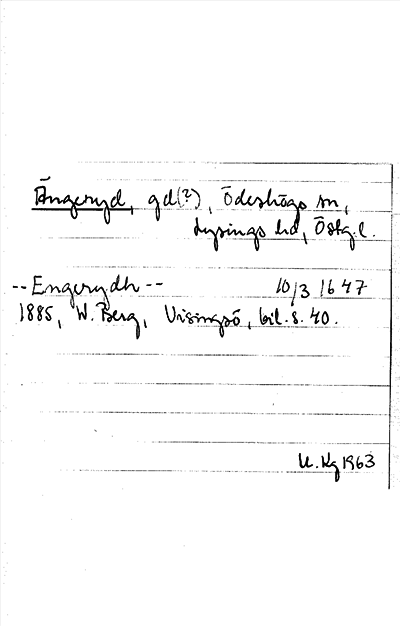 Ängeryd, gd(?), Ödeshögs sn,
Lysings hd, Östg.l.
-- Engerydh -- 10/3 1647
1885, W. Berg, Visingsö, bil. s. 40.
U. Kg 1963